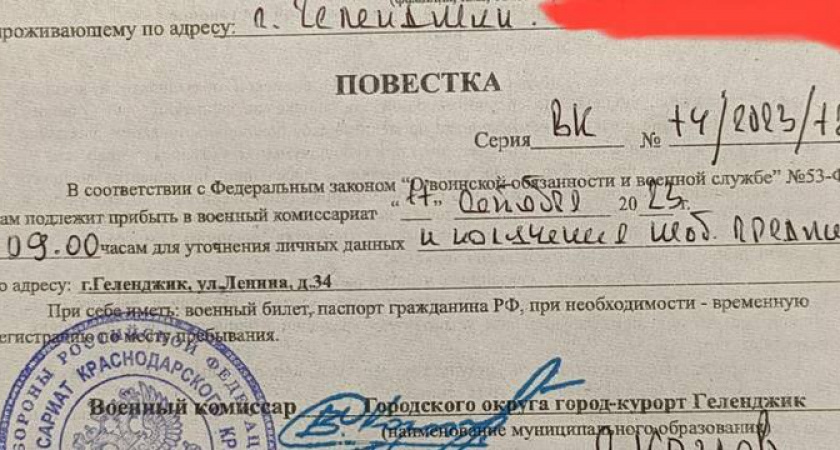 роживающему по адресу: г. Геленджик.
ПОВЕСТКА
Серия ВК № 74/2023/7
В соответствии с Федеральным законом "О воинской обязанности и военной службе" №53-Ф
ам подлежит прибыть в военный комиссариат "17" октября 2023г.
09.00 часам для уточнения личных данных и получения моб. предпи
о адресу: г.Геленджик, ул.Ленина, д.34
При себе иметь: военный билет, паспорт гражданина РФ, при необходимости - временную
егистрацию по месту пребывания.
ОБОРОНЫ РОССИЙСКОЙ ФЕДЕРАЦ
САРИАТ КРАСНОДАРСКОГО КР
Военный комиссар Городского округа город-курорт Геленджик
(наименование муниципального образования)